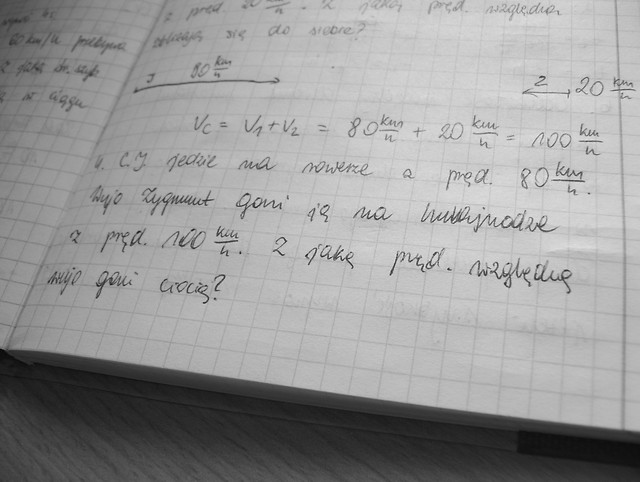 60 km/h
z pręd. 20 km/h. Z jaką pręd. względną
się do siebie?
80 km/h
2 20 km/h
Vc = V1 + V2 = 80 km/h + 20 km/h = 100 km/h
4. C.J. jedzie na rowerze z pręd. 80 km/h.
Wujo Zygmunt goni ją na hulajnodze
z pręd. 100 km/h. Z jaką pręd. względną
wujo goni ciocię?